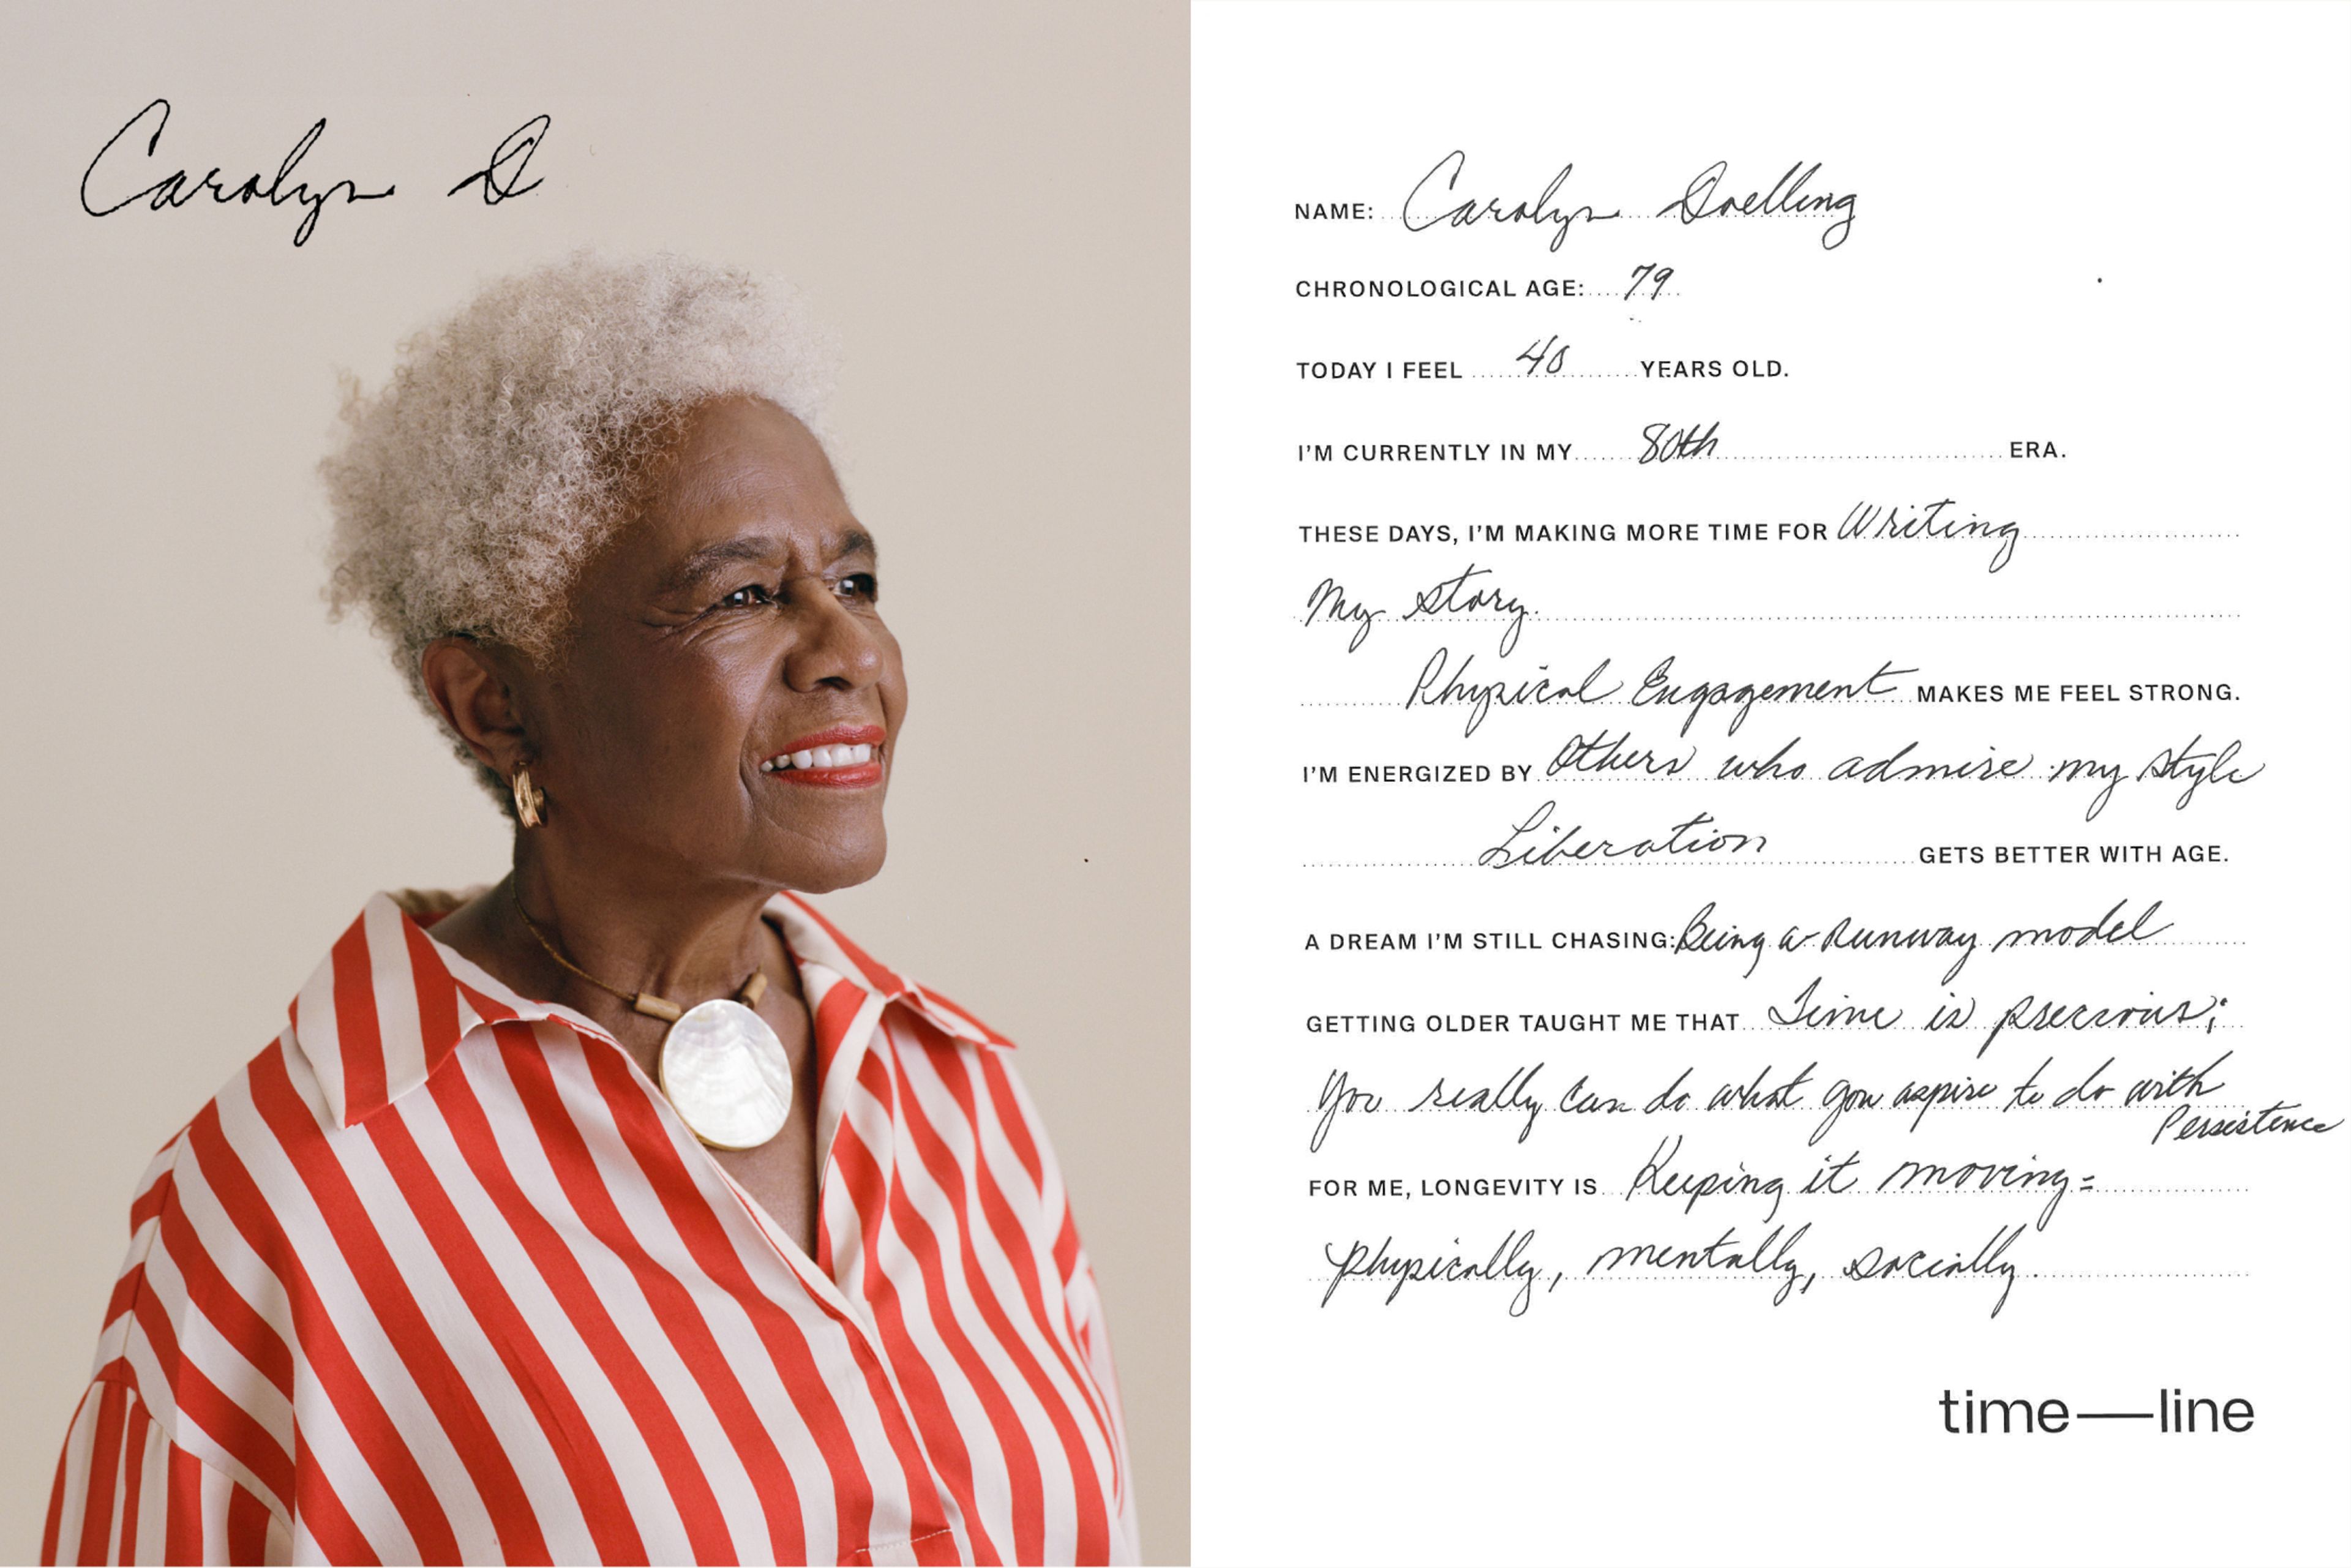 Carolyn D
NAME: Carolyn Doelling
CHRONOLOGICAL AGE: 79
TODAY I FEEL 40 YEARS OLD.
I'M CURRENTLY IN MY 80th ERA.
THESE DAYS, I'M MAKING MORE TIME FOR Writing
My Story.
Physical Engagement MAKES ME FEEL STRONG.
I'M ENERGIZED BY Others who admire my style
Liberation GETS BETTER WITH AGE.
A DREAM I'M STILL CHASING: Being a Runway model
GETTING OLDER TAUGHT ME THAT Time is precious;
You really can do what you aspire to do with
Persistence
FOR ME, LONGEVITY IS Keeping it moving=
physically, mentally, socially.
time—line